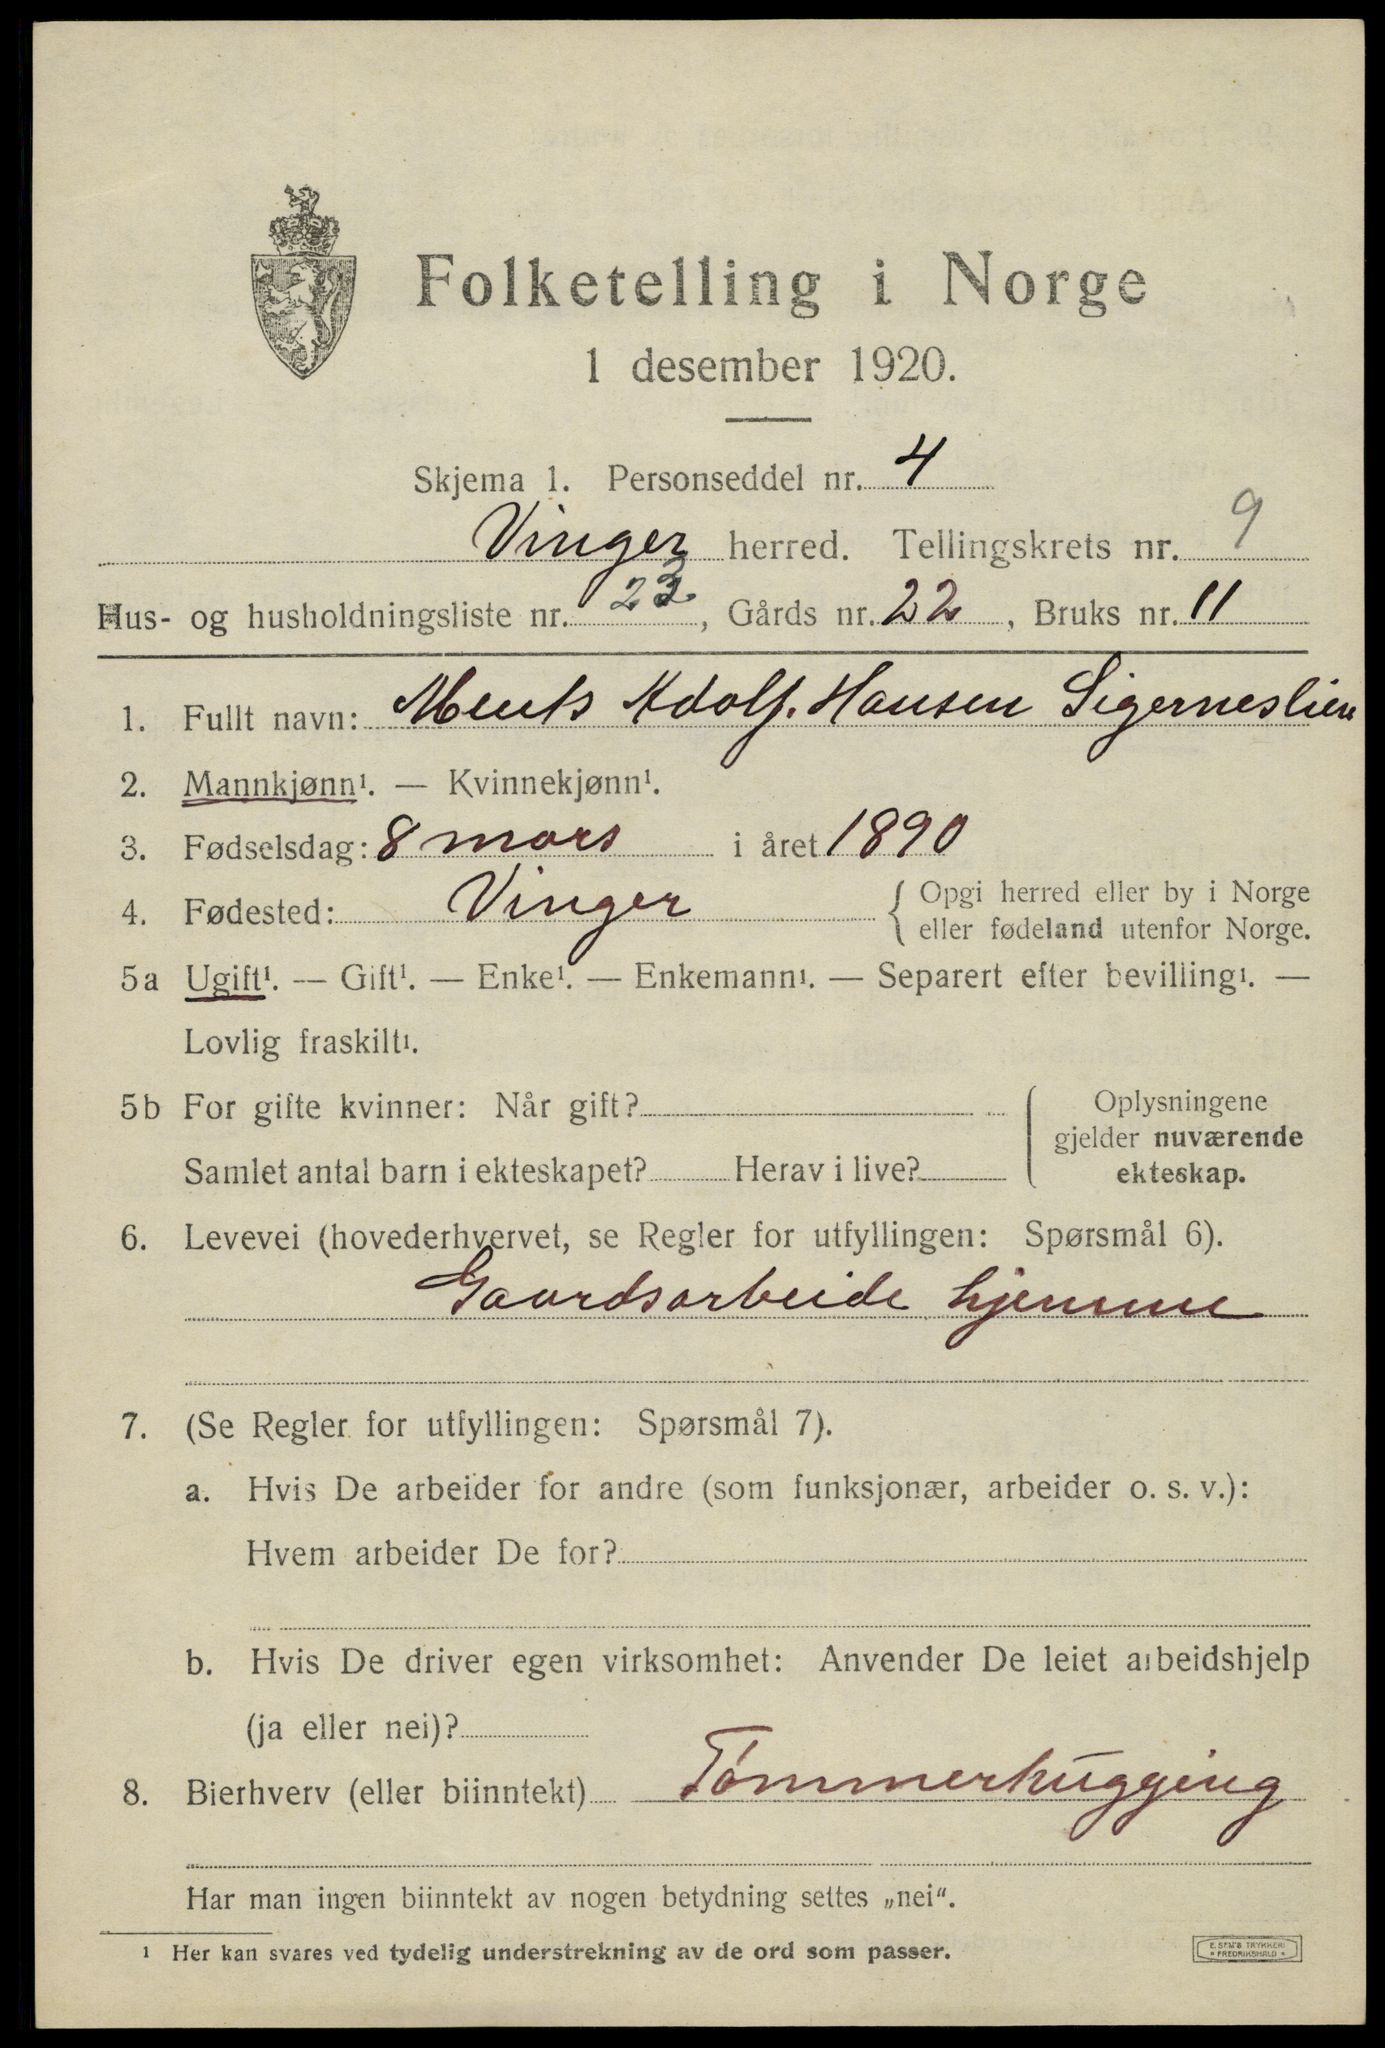 Folketelling i Norge
1 desember 1920.
Skjema 1. Personseddel nr. 4
Vinger herred. Tellingskrets nr. 9
Hus- og husholdningsliste nr. 23, Gårds nr. 22, Bruks nr. 11
1. Fullt navn: Ments Adolf. Hansen Sigerneslien
2. Mannkjønn¹. — Kvinnekjønn¹.
3. Fødselsdag: 8 mars i året 1890
4. Fødested: Vinger { Opgi herred eller by i Norge
eller fødeland utenfor Norge.
5a Ugift¹. — Gift¹. — Enke¹. — Enkemann¹. — Separert efter bevilling¹. —
Lovlig fraskilt¹.
5b For gifte kvinner: Når gift? { Oplysningene
gjelder nuværende
Samlet antal barn i ekteskapet? Herav i live? ekteskap.
6. Levevei (hovederhvervet, se Regler for utfyllingen: Spørsmål 6).
Gaardsarbeide hjemme
7. (Se Regler for utfyllingen: Spørsmål 7).
a. Hvis De arbeider for andre (som funksjonær, arbeider o. s. v.):
Hvem arbeider De for?
b. Hvis De driver egen virksomhet: Anvender De leiet arbeidshjelp
(ja eller nei)?
8. Bierhverv (eller biinntekt) Tømmerhugging
Har man ingen biinntekt av nogen betydning settes „nei“.
¹ Her kan svares ved tydelig understrekning av de ord som passer.
E. SEM'S TRYKKERI
FREDRIKSHALD